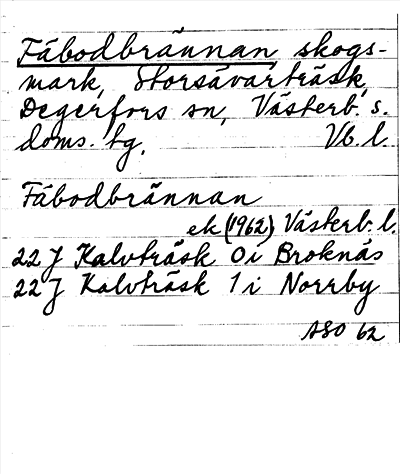 Fäbodbrännan, skogs-
mark, Storsävarträsk,
Degerfors sn, Västerb. s.
doms. tg. Vb. l.
Fäbodbrännan
ek (1962) Västerb. l.
22 J Kalvträsk 0 i Broknäs
22 J Kalvträsk 1 i Norrby
ASO 62